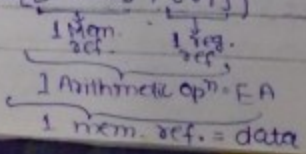 1 Mem. 1 reg.
ref. ref.
1 Arithmetic opn. EA
1 mem. ref. = data